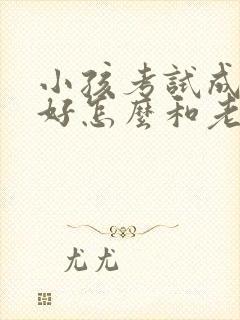 小孩考試成
好怎麼和老
尤尤